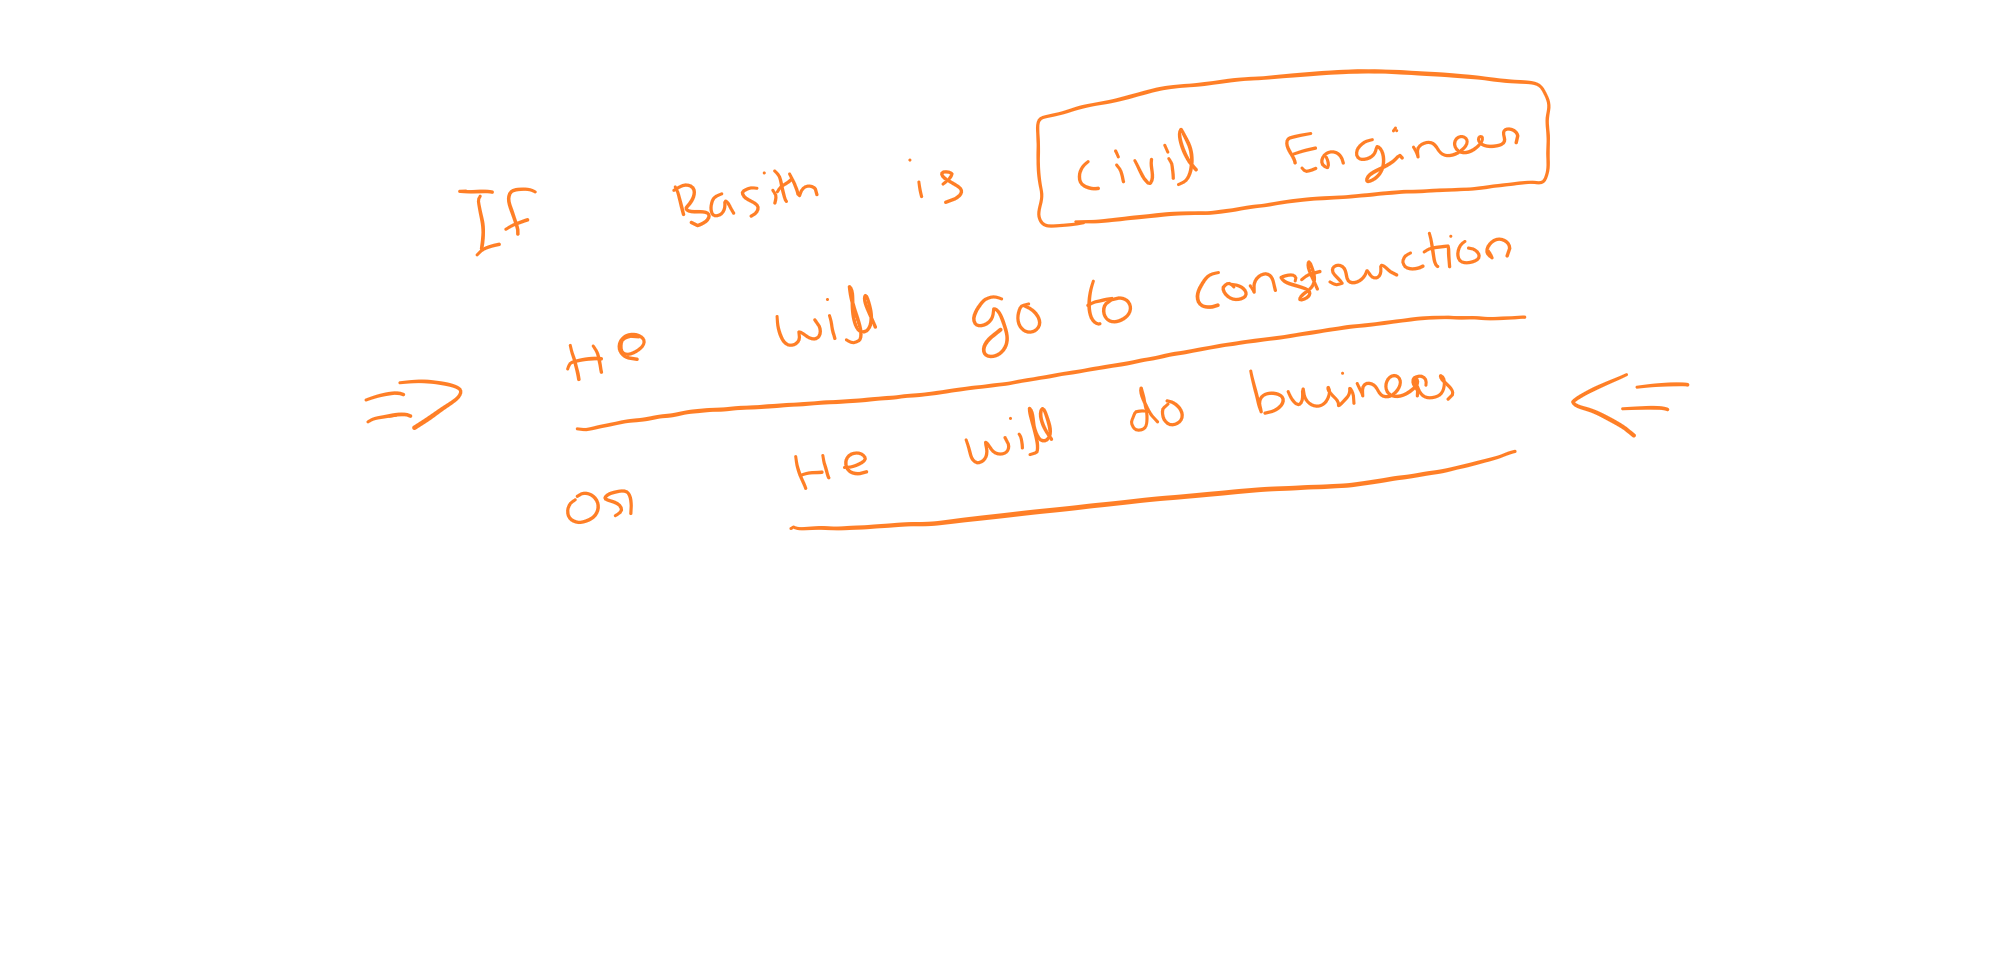 If Basith is Civil Engineer
He will go to Construction
or He will do business